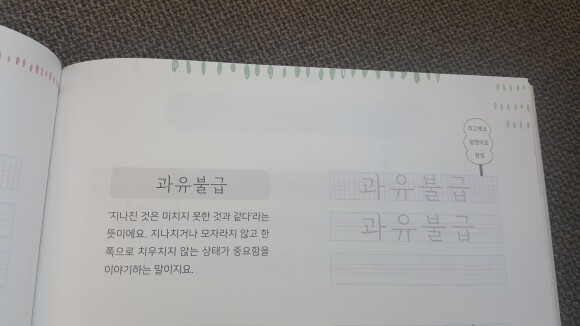 과유불급
'지나친 것은 미치지 못한 것과 같다'라는
뜻이에요. 지나치거나 모자라지 않고 한
쪽으로 치우치지 않는 상태가 중요함을
이야기하는 말이지요.
최고예요
잘했어요
과유불급
과유불급